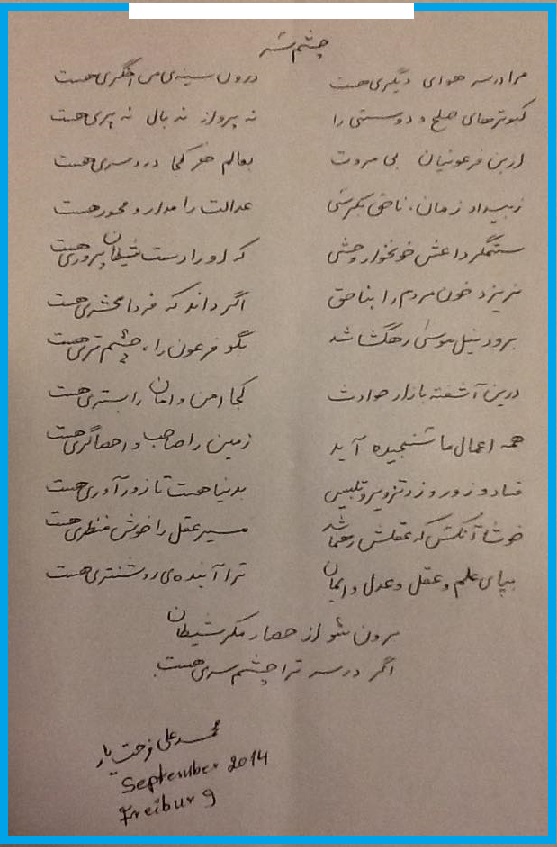 چشم سَر
مرا در سر هوای دیگری هست درون سینه‌ی من اخگری هست
کبوترهای صلح و دوستی را نه پرواز نه بال نه پری هست
ازین فرعونیان بی مروت بعالم هر کجا دردسری هست
زبیداد زمان، ناحق عدالت را مدار و محور هست
ستمگر داعش خونخوار وحشی که او را دست شیطان پروری هست
نریزد خون مردم را بناحق اگر داند که فردا محشری هست
برود نیل موسی رهگشا شد نگو فرعون را، چشم تری هست
درین آشفته بازار حوادث کجا امن و امان را بستری هست
همه اعمال ما سنجیده آید زمین را صاحب و احصاگری هست
فساد و زور و زر و تزویر و تلبیس بدنیا هست تا زورآوری هست
خوشا آنکس که عقلش رهنما شد مسیر عقل را خوش منظری هست
بپای علم و عقل و عدل و ایمان ترا آینده‌ی روشنتری هست
برون شو از حصار مکر شیطان
اگر در سر ترا چشم سری هست
محمد علی فرحت یار
September 2014
Freiburg